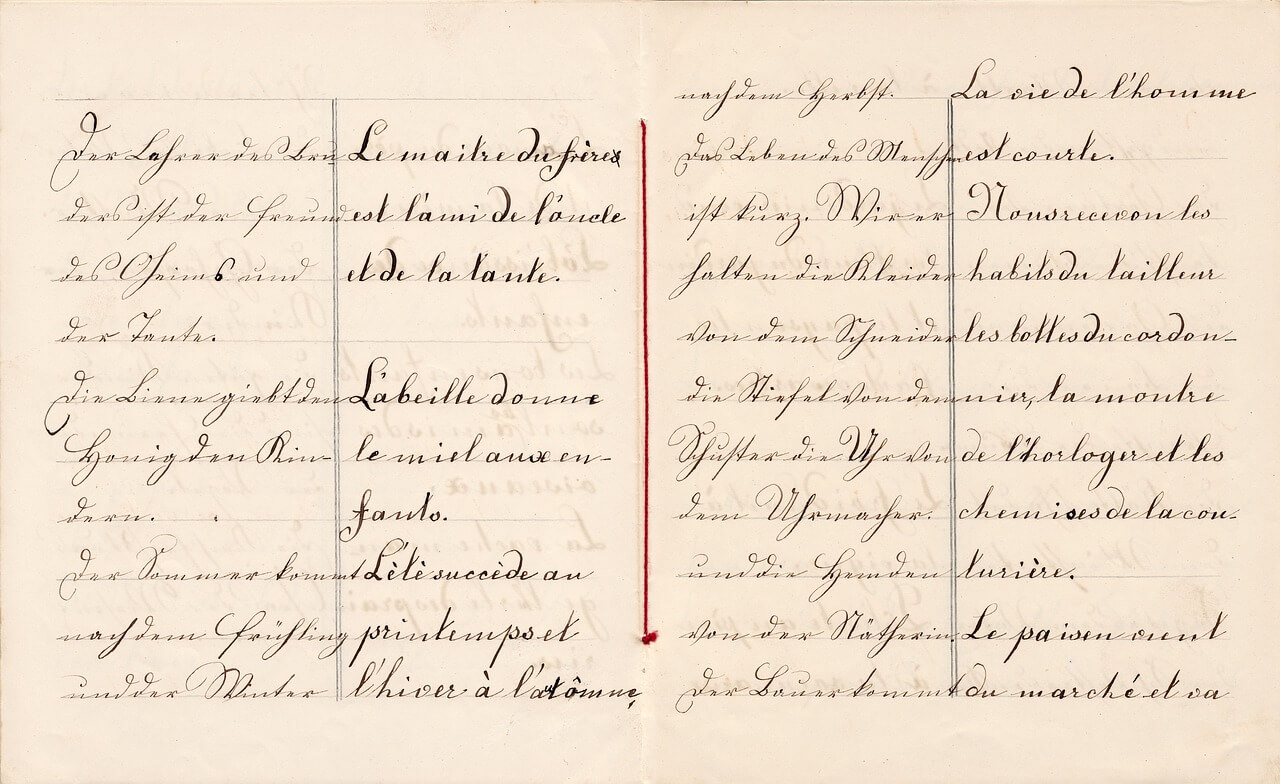 Der Lehrer des Bru
ders ist der Freund
des Oheims und
der Tante.
Die Biene giebt den
Honig den Kin-
dern.
Der Sommer kommt
nach dem Frühling
und der Winter
Le maitre du frères
est l'ami de l'oncle
et de la tante.
L'abeille donne
le miel aux en-
fants.
L'été succède au
printemps et
l'hiver à l'atômne,
nach dem Herbst.
Das Leben des Menschen
ist kurz. Wir er
halten die Kleider
von dem Schneider
die Stiefel von dem
Schuster die Uhr von
dem Uhrmacher.
und die Hemden
von der Nätherin.
Der Bauer kommt
La vie de l'homme
est courte.
Nous recevon les
habits du tailleur
les bottes du cordon-
nier, la montre
de l'horloger et les
chemises de la cou-
turière.
Le paisen vient
du marché et va